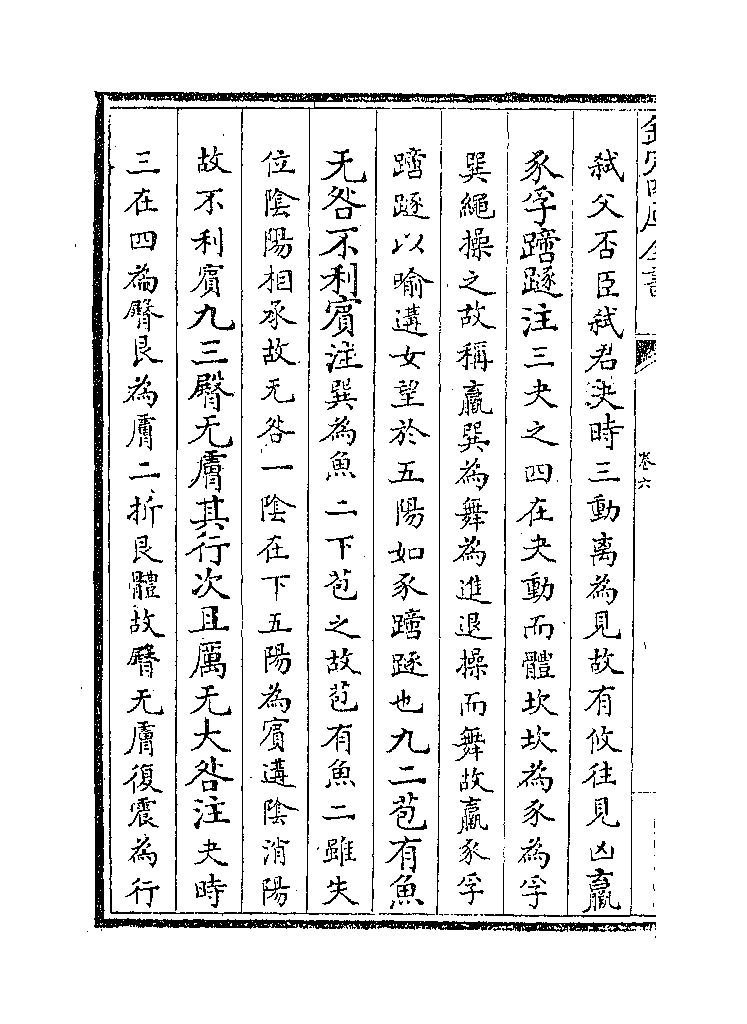 欽定四庫全書
卷六
弑父否臣弑君夬時三動离為見故有攸往見凶羸
豕孚蹢䠱注三夬之四在夬動而體坎坎為豕為孚
巽繩操之故稱羸巽為舞為進退操而舞故羸豕孚
蹢䠱以喻遘女望於五陽如豕蹢䠱也九二苞有魚
无咎不利賓注巽為魚二下苞之故苞有魚二雖失
位陰陽相承故无咎一陰在下五陽為賓遘陰消陽
故不利賓九三臀无膚其行次且厲无大咎注夬時
三在四為臀艮為膚二折艮體故臀无膚復震為行